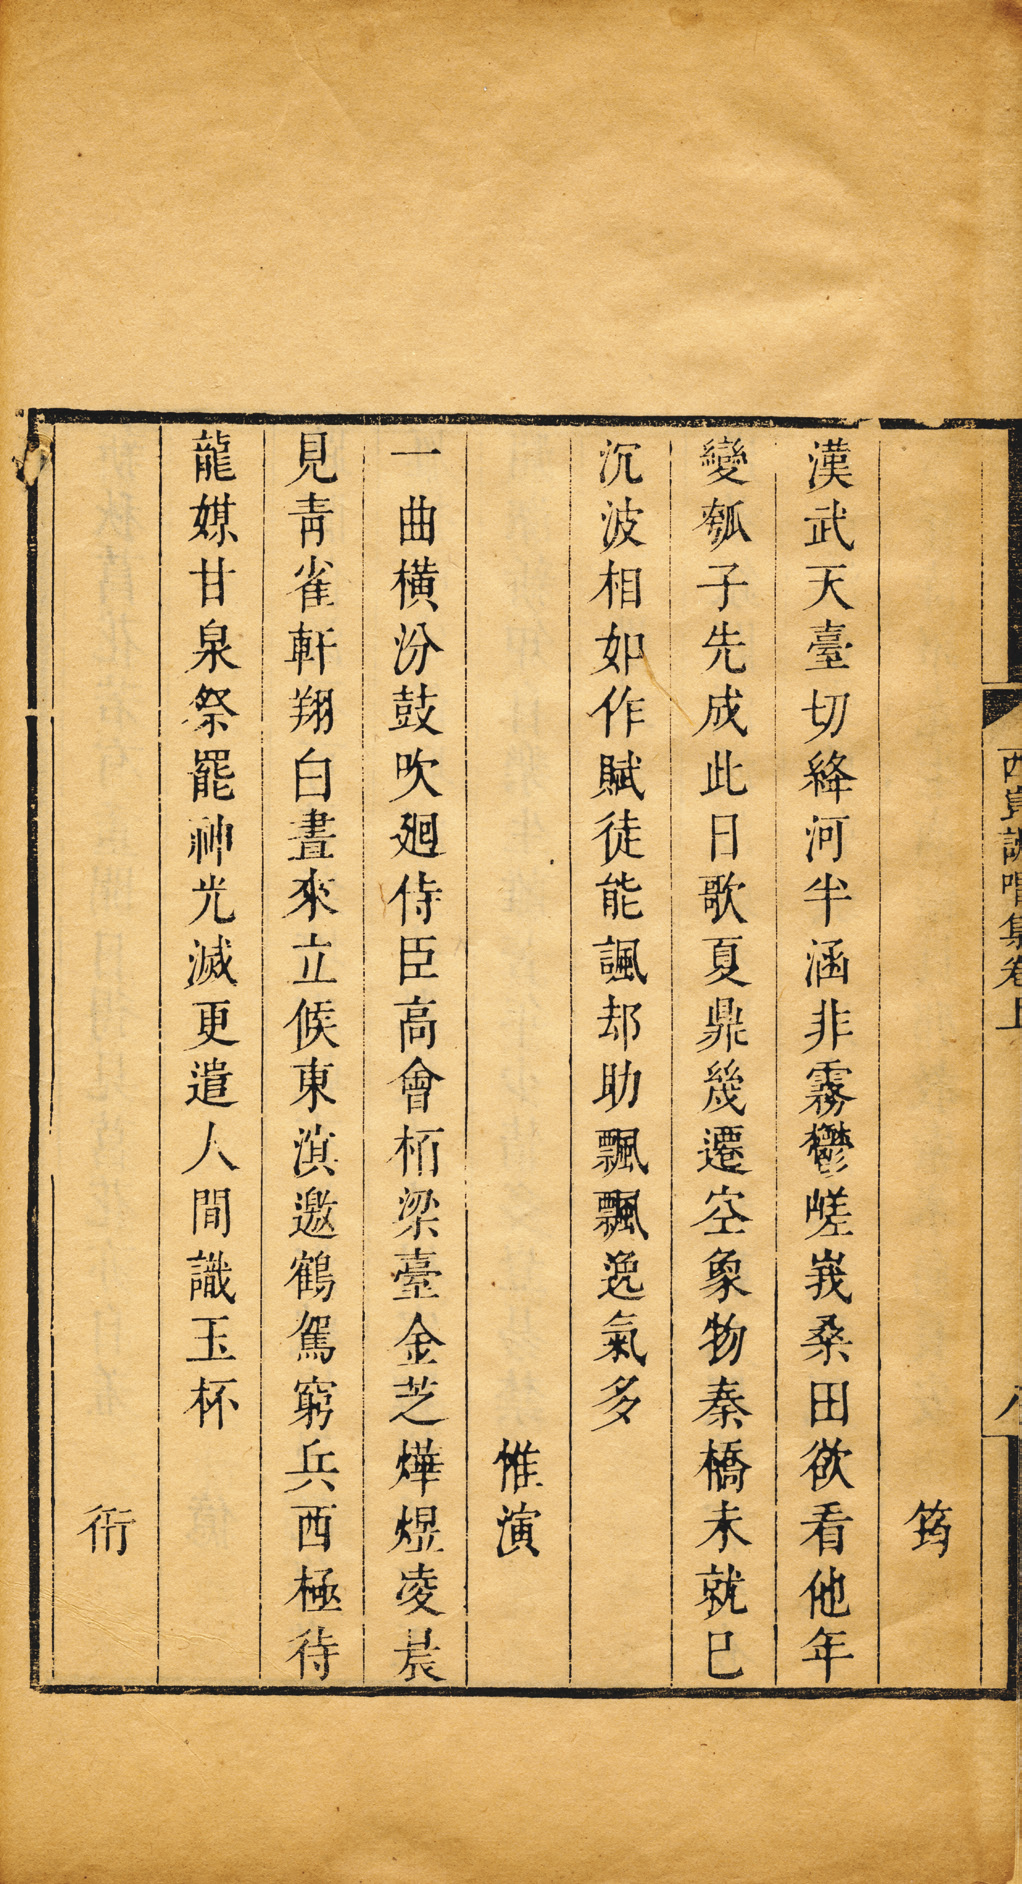 西崑詶唱集卷上
筠
漢武天臺切絳河半涵非霧鬱嵯峩桑田欲看他年
變瓠子先成此日歌夏鼎幾遷空象物秦橋未就已
沉波相如作賦徒能諷却助飄飄逸氣多
惟演
一曲橫汾鼓吹廻侍臣高會栢梁臺金芝燁煜凌晨
見青雀軒翔白晝來立候東溟邀鶴駕窮兵西極待
龍媒甘泉祭罷神光滅更遣人間識玉杯
衎